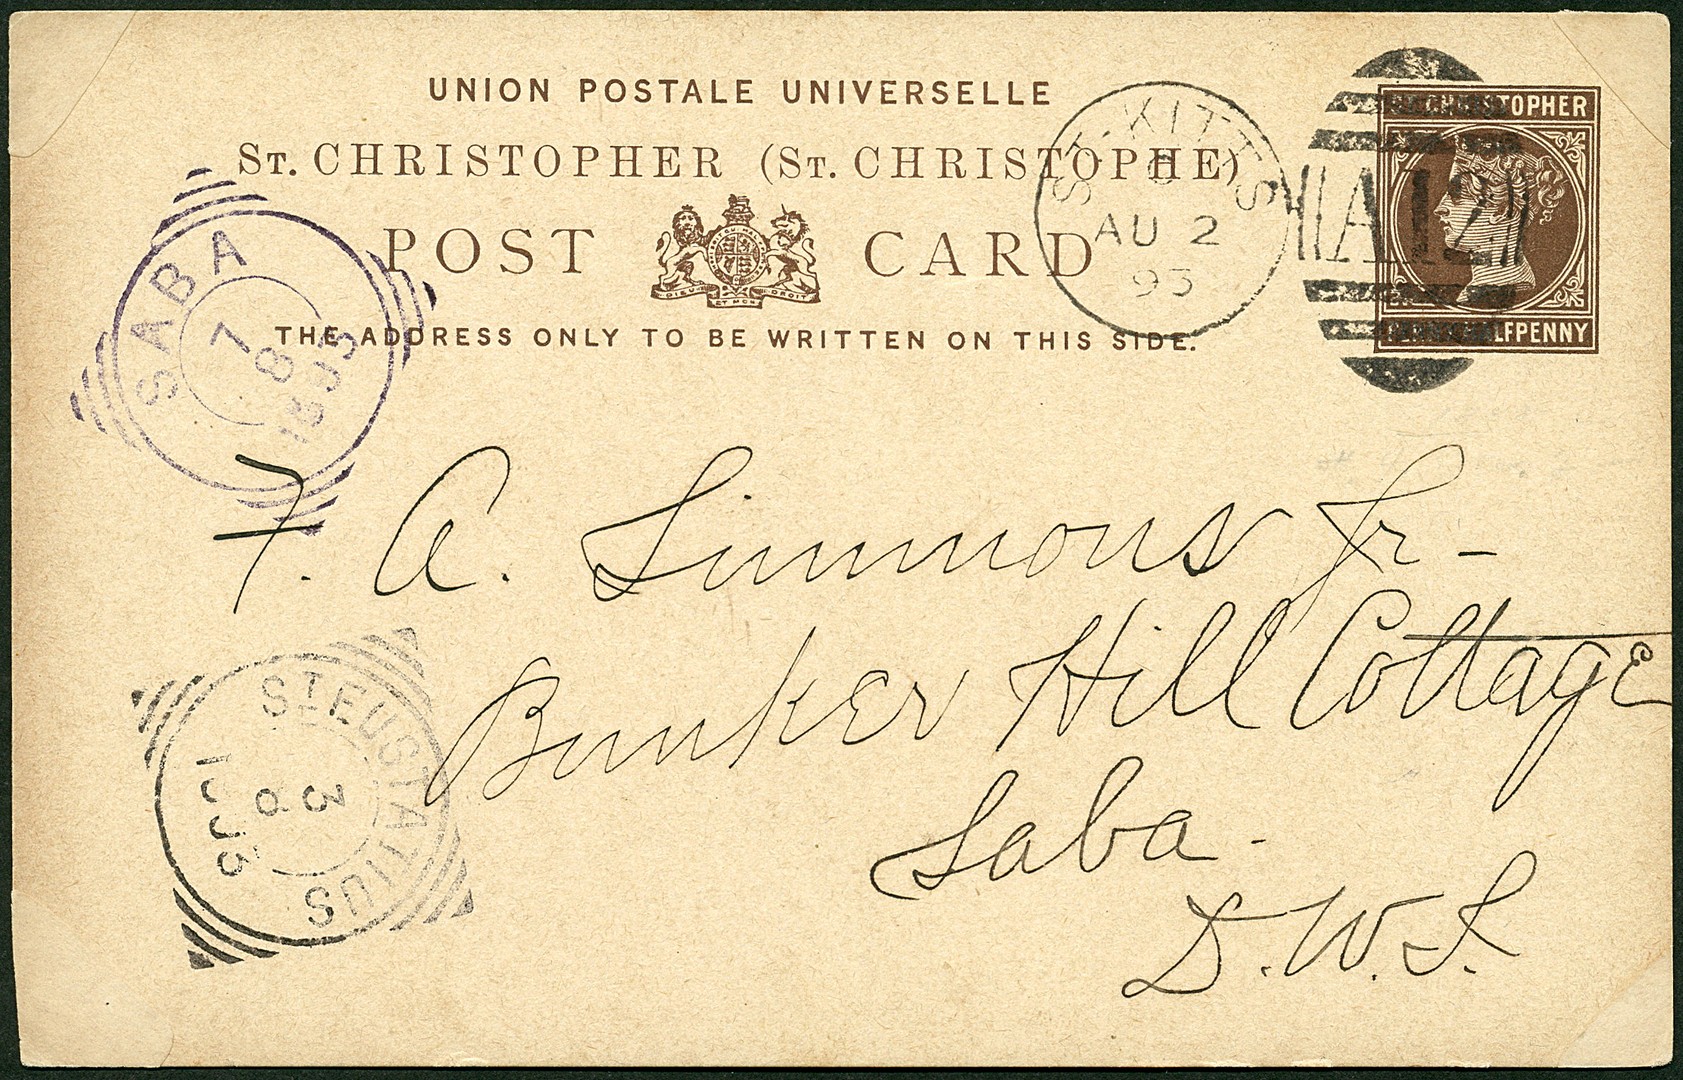 UNION POSTALE UNIVERSELLE
ST. CHRISTOPHER (ST. CHRISTOPHE)
POST CARD
DIEU ET MON DROIT
THE ADDRESS ONLY TO BE WRITTEN ON THIS SIDE.
ST. KITTS
C
AU 2
93
A12
CHRISTOPHER
HALFPENNY
SABA
7
8
F. A. Simmons Jr-
Bunker Hill Cottage
Saba.
D.W.I.
ST EUSTATIUS
3